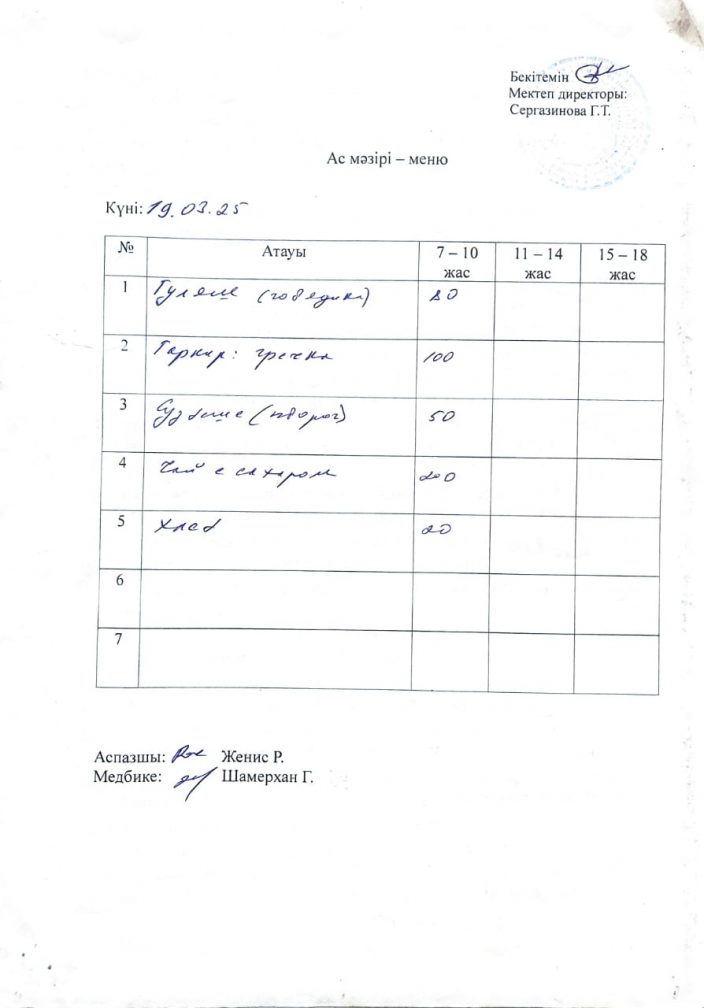 Бекітемін
Мектеп директоры:
Сергазинова Г.Т.
Ас мәзірі – меню
Күні: 19.03.25
№ Атауы 7 – 10 жас 11 – 14 жас 15 – 18 жас
1 Гуляш (говядина) 80
2 Гарнир: гречка 100
3 Сузбеше (творог) 50
4 Чай с сахаром 200
5 Хлеб 20
6
7
Аспазшы: Женис Р.
Медбике: Шамерхан Г.